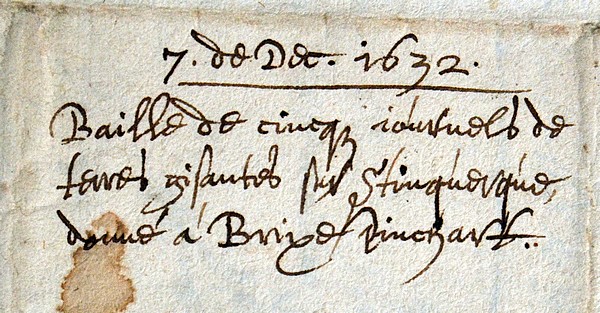 7. de Dec. 1632.
Baille de cincq journels de
terres gisantes sur Stinquerque,
donné á Brixe Rinchart..